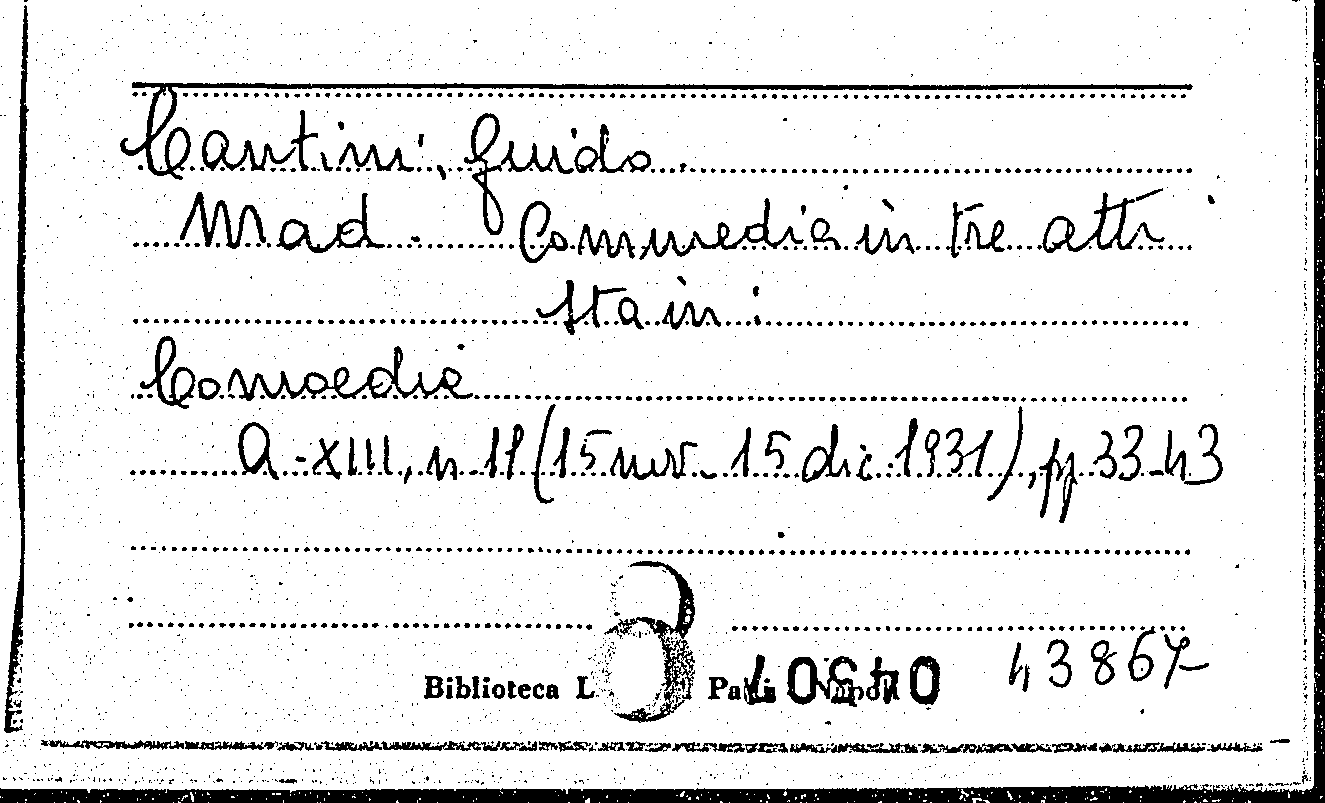 Cantini, Guido.
Mad. Commedia in tre atti
sta in:
Comoedia
A. XIII, n. 11 (15 nov. - 15 dic. 1931), pp. 33-43
Biblioteca L
43867